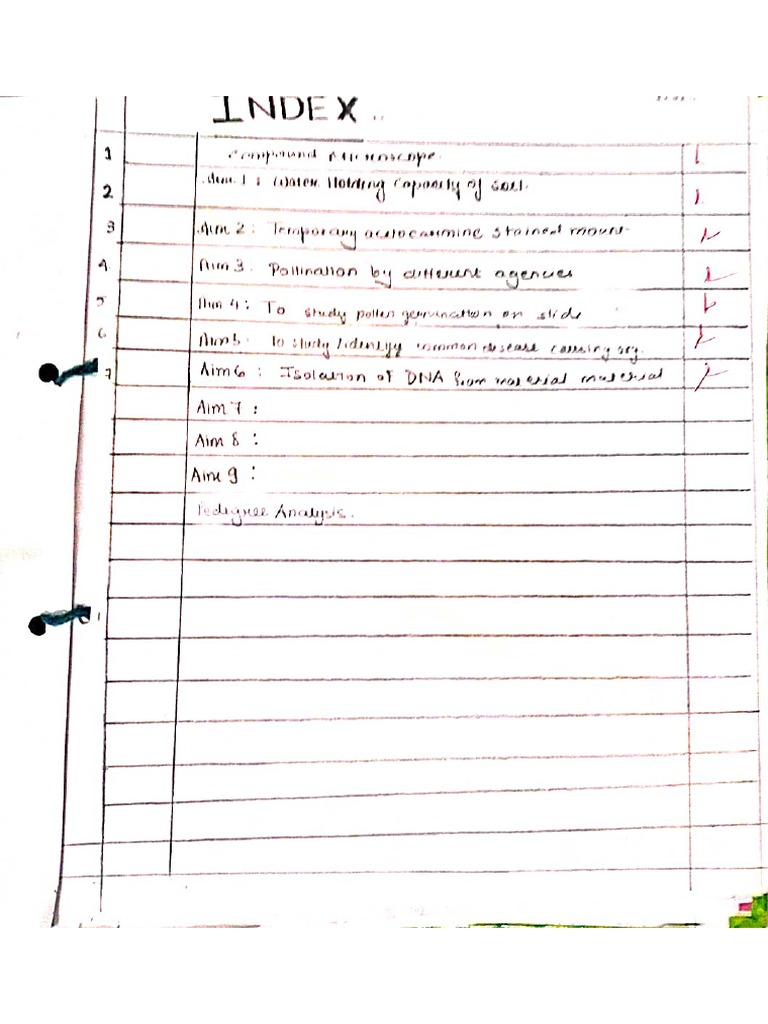 INDEX
1 Compound Microscope.
2 Aim 1 : Water Holding Capacity of soil.
3 Aim 2 : Temporary acetocarmine stained mount
4 Aim 3. Pollination by different agencies
5 Aim 4 : To study pollen germination on slide
6 Aim 5 To study/identify common disease causing org.
7 Aim 6 : Isolation of DNA from material material
Aim 7 :
Aim 8 :
Aim 9 :
Pedigree Analysis.